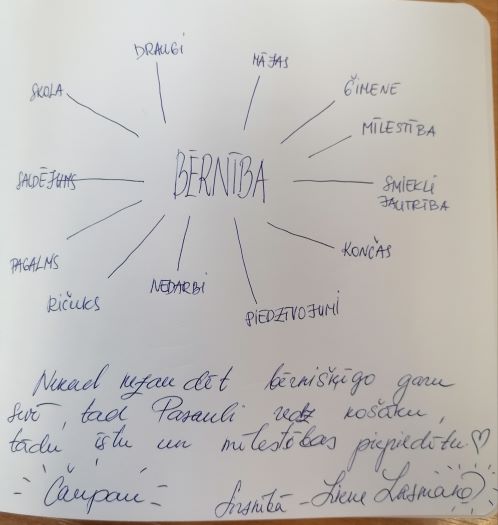 DRAUGI
MĀJAS
SKOLA
ĢIMENE
MĪLESTĪBA
SALDĒJUMS
BĒRNĪBA
SMIEKLI
JAUTRĪBA
PAGALMS
KONČAS
RIČUKS
NEDARBI
PIEDZĪVOJUMI
Nekad nezaudēt bērnišķīgo garu
sevī, tad Pasauli redz košāku,
tādu īstu un mīlestības piepildītu ♡
Čaupau
Sirsnībā - Liene